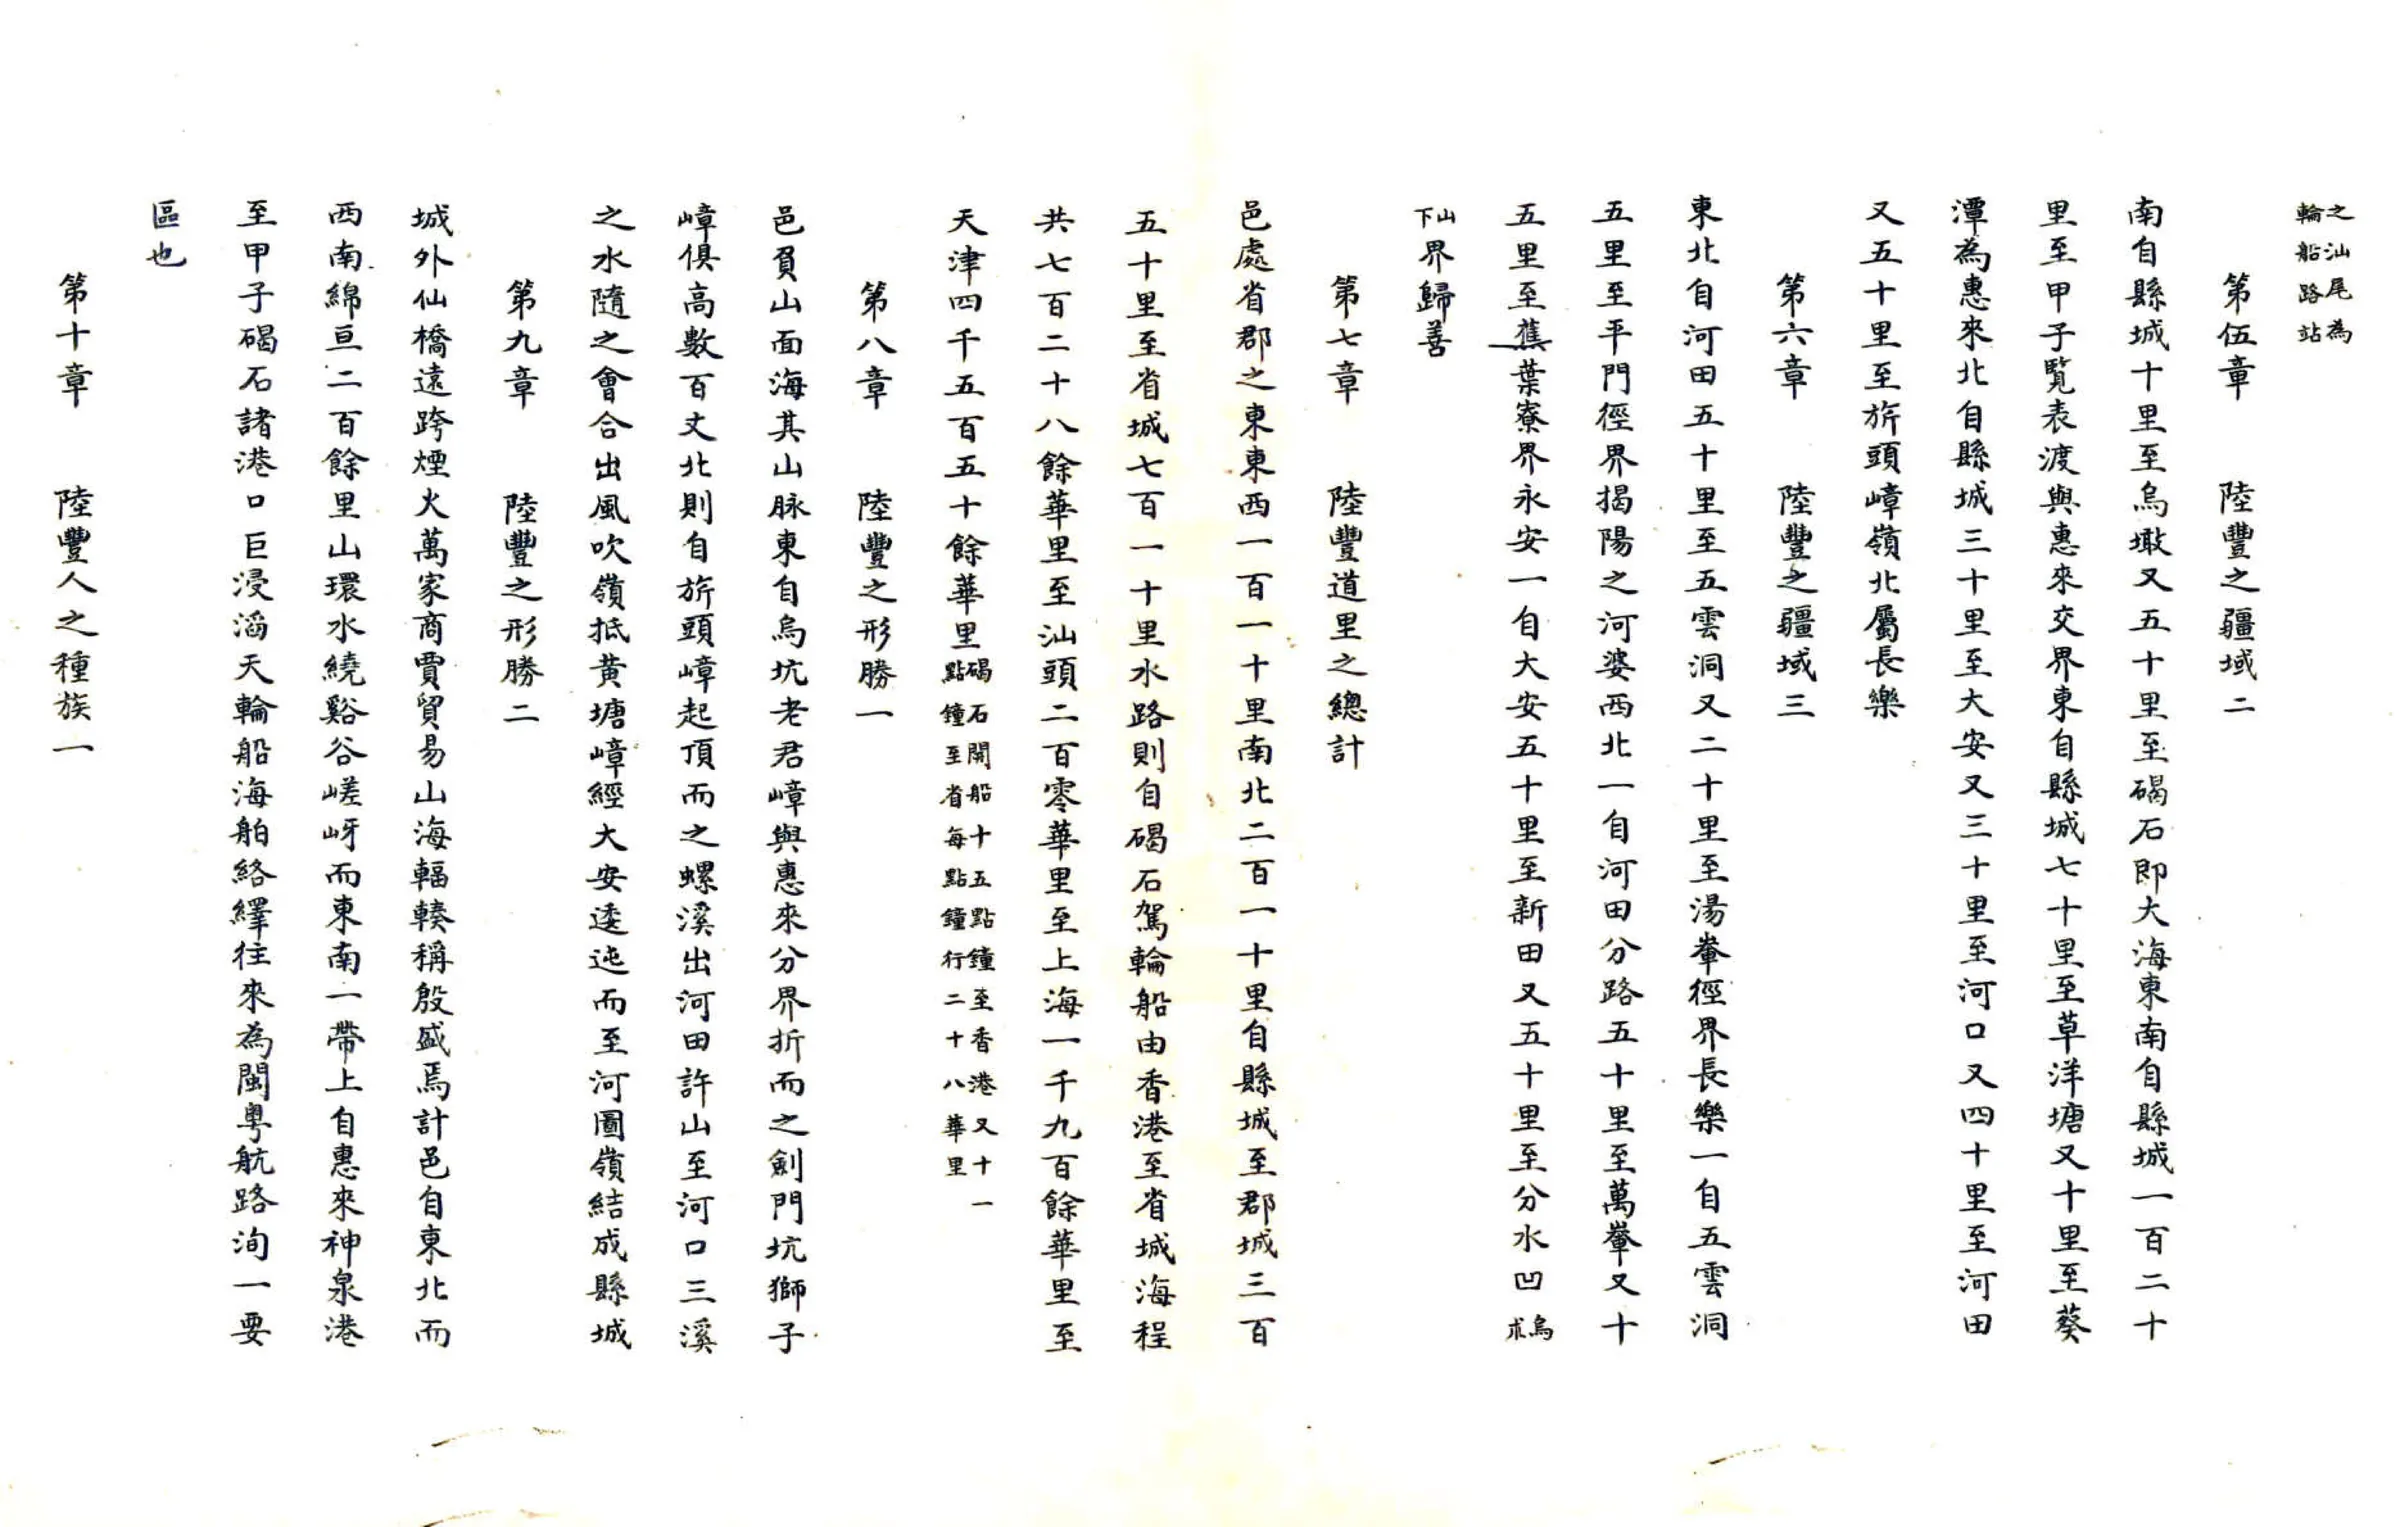 之汕尾為
輪船路站
第伍章　陸豐之疆域二
南自縣城十里至烏墩又五十里至碣石即大海東南自縣城一百二十
里至甲子覽表渡與惠來交界東自縣城七十里至草洋塘又十里至葵
潭為惠來北自縣城三十里至大安又三十里至河口又四十里至河田
又五十里至旂頭嶂嶺北屬長樂
第六章　陸豐之疆域三
東北自河田五十里至五雲洞又二十里至湯輋徑界長樂一自五雲洞
五里至平門徑界揭陽之河婆西北一自河田分路五十里至萬輋又十
五里至蕉葉寮界永安一自大安五十里至新田又五十里至分水凹烏求
山下界歸善
第七章　陸豐道里之總計
邑處省郡之東東西一百一十里南北二百一十里自縣城至郡城三百
五十里至省城七百一十里水路則自碣石駕輪船由香港至省城海程
共七百二十八餘華里至汕頭二百零華里至上海一千九百餘華里至
天津四千五百五十餘華里碣石開船十五點鐘至香港又十一點鐘至省每點鐘行二十八華里
第八章　陸豐之形勝一
邑負山面海其山脉東自烏坑老君嶂與惠來分界折而之劍門坑獅子
嶂俱高數百丈北則自旂頭嶂起頂而之螺溪出河田許山至河口三溪
之水隨之會合出風吹嶺抵黃塘嶂經大安逶迤而至河圖嶺結成縣城
第九章　陸豐之形勝二
城外仙橋遠跨煙火萬家商賈貿易山海輻輳稱殷盛焉計邑自東北而
西南綿亘二百餘里山環水繞谿谷嵯岈而東南一帶上自惠來神泉港
至甲子碣石諸港口巨浸滔天輪船海舶絡繹往來為閩粵航路洵一要
區也
第十章　陸豐人之種族一